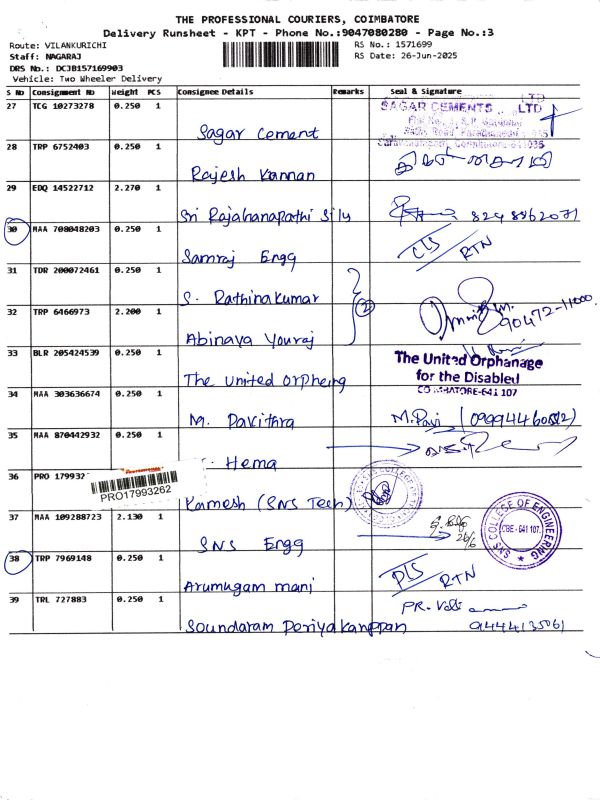 THE PROFESSIONAL COURIERS, COIMBATORE
Delivery Runsheet - KPT - Phone No.:9047080280 - Page No.:3
Route: VILANKURICHI
RS No.: 1571699
Staff: NAGARAJ
RS Date: 26-Jun-2025
DRS No.: DCJB157169903
Vehicle: Two Wheeler Delivery
S No Consignment No Weight PCS Consignee Details Remarks Seal & Signature
27 TCG 10273278 0.250 1
SAGAR CEMENTS LTD
Sagar Cement
28 TRP 6752403 0.250 1
Rajesh Kannan
29 EDQ 14522712 2.270 1
Sri Rajahanapathi Sily
30 MAA 708048203 0.250 1
Samraj Engg CLS RTN
31 TDR 200072461 0.250 1
S. Rathinakumar
2
32 TRP 6466973 2.200 1
90472-11000
Abinaya Youraj
33 BLR 205424539 0.250 1
The United Orphanage
for the Disabled
COIMBATORE-641 107
The united orpheing
34 MAA 303636674 0.250 1
M. Pavithra M. Pavi
35 MAA 870442932 0.250 1
Hema
36 PRO 17993
PRO17993262
Kamesh (SNS Tech)
37 MAA 109288723 2.130 1
SNS COLLEGE OF ENGINEERING
CBE - 641 107.
26/6
SNS Engg
38 TRP 7969148 0.250 1
Arumugam mani DLS RTN
39 TRL 727883 0.250 1
Soundaram Periyakanppan